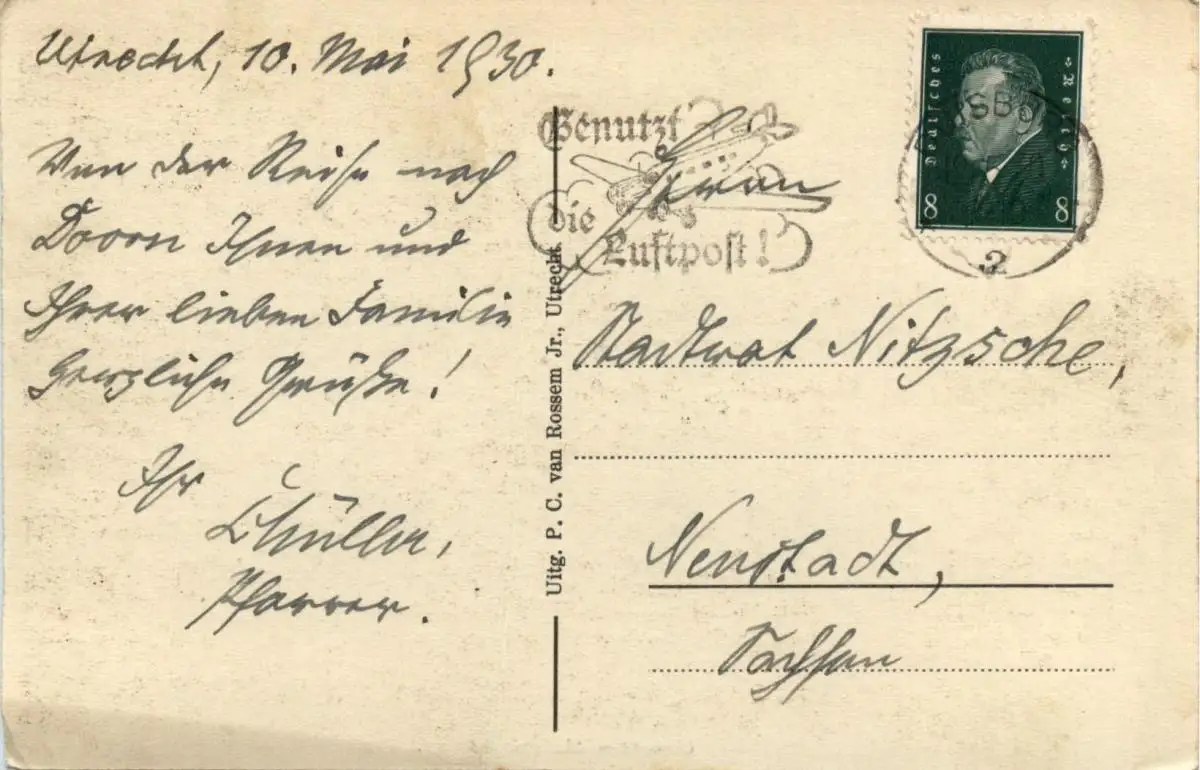 Utrecht, 10. Mai 1930.
Von der Reise nach
Doorn Ihnen und
Ihrer lieben Familie
herzliche Grüße!
Ihr
Pfarrer.
Uitg. P. C. van Rossem Jr., Utrecht
Benutzt
die
Luftpost!
Deutsches Reich
8 8
2
Stadtrat Nitzsche,
Neustadt,
Sachsen